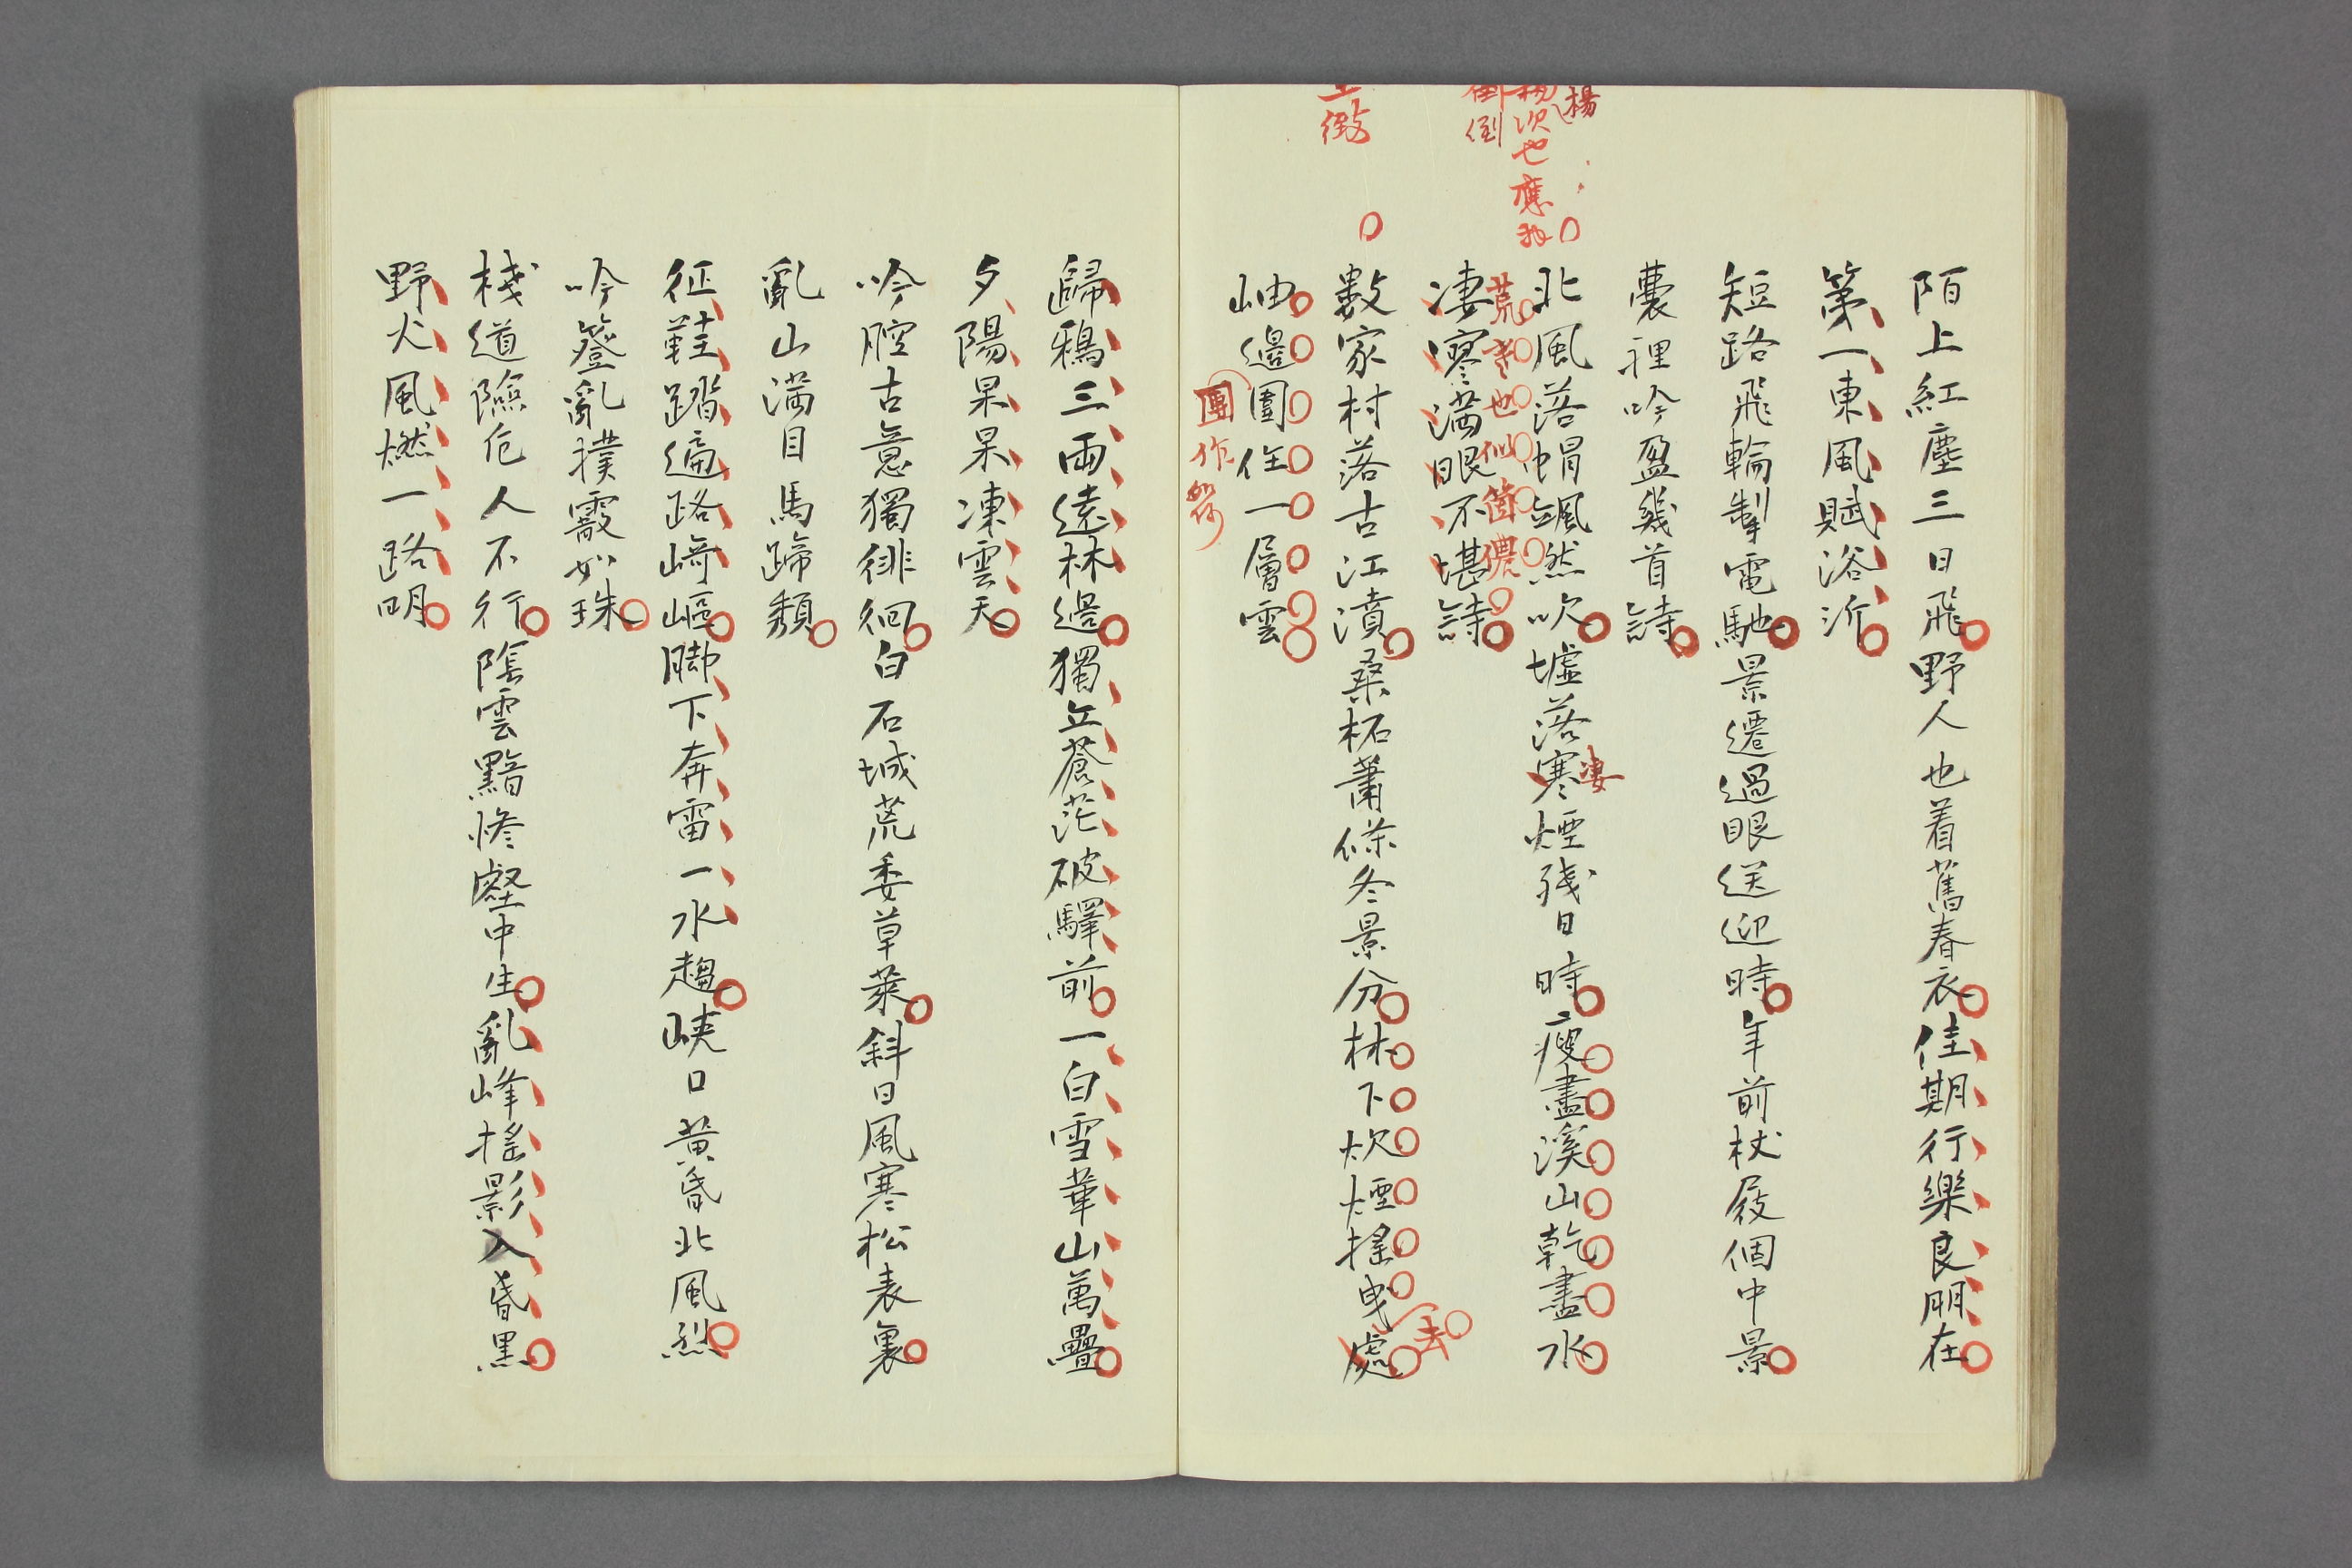 楊
楊次也應
倒倒
徵
陌上紅塵三日飛野人也着舊春衣佳期行樂良朋在
第一東風賦浴沂
短路飛輪掣電馳景遷過眼送迎時年前杖屐個中景
囊裡吟盈幾首詩
北風落帽颯然吹墟落寒煙殘日時瘦盡溪山乾盡水
凄
荒寒也似箇儂
凄寥滿眼不堪詩
數家村落古江濆桑柘蕭條冬景分林下炊煙搖曳處
去
岫邊圍住一層雲
團作如何
歸鴉三兩遠林邊獨立蒼茫破驛前一白雪華山萬疊
夕陽杲杲凍雲天
吟腔古意獨徘徊白石城荒委草萊斜日風寒松表裏
亂山滿目馬蹄頹
征鞋踏遍路崎嶇腳下奔雷一水趨峽口黃昏北風烈
吟簦亂撲霰如珠
棧道險危人不行陰雲黯慘壑中生亂峰搖影入昏黑
野火風燃一路明